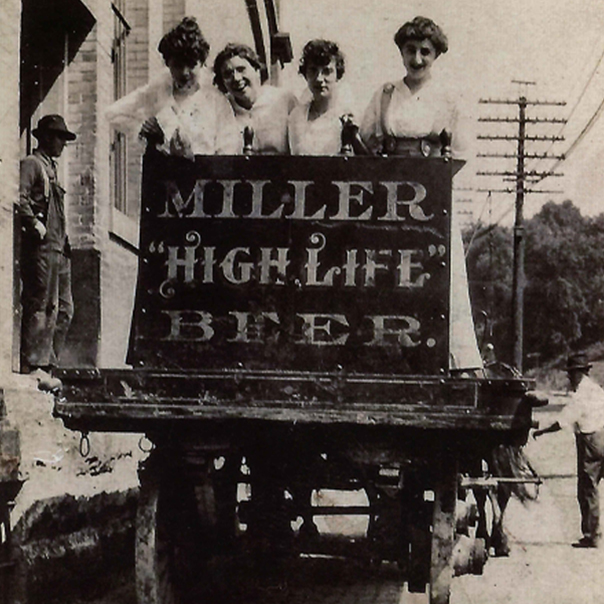 MILLER
“HIGH LIFE”
BEER.